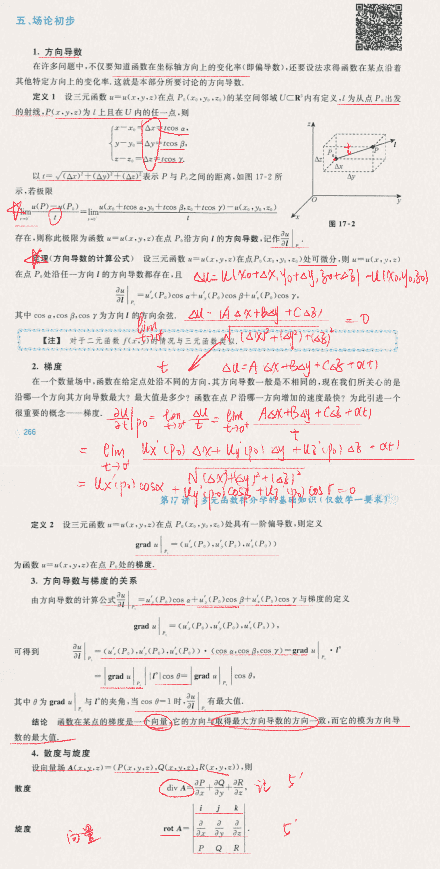 五、场论初步
1. 方向导数
在许多问题中,不仅要知道函数在坐标轴方向上的变化率(即偏导数),还要设法求得函数在某点沿着
其他特定方向上的变化率.这就是本部分所要讨论的方向导数.
定义 1 设三元函数 u=u(x,y,z)在点 P₀(x₀,y₀,z₀)的某空间邻域 U⊂R³内有定义,l 为从点 P₀出发
的射线,P(x,y,z)为 l 上且在 U 内的任一点,则
x−x₀=Δx=tcos α,
y−y₀=Δy=tcos β,
z−z₀=Δz=tcos γ.
以 t=√((Δx)²+(Δy)²+(Δz)²)表示 P 与 P₀之间的距离,如图 17-2 所
示,若极限
lim u(P)−u(P₀)/t=lim u(x₀+tcos α,y₀+tcos β,z₀+tcos γ)−u(x₀,y₀,z₀)/t
图 17-2
存在,则称此极限为函数 u=u(x,y,z)在点 P₀沿方向 l 的方向导数,记作∂u/∂l|P₀.
定理(方向导数的计算公式) 设三元函数 u=u(x,y,z)在点 P₀(x₀,y₀,z₀)处可微分,则 u=u(x,y,z)
在点 P₀处沿任一方向 l 的方向导数都存在,且
Δu=u(x₀+Δx,y₀+Δy,z₀+Δz)−u(x₀,y₀,z₀)
∂u/∂l|P₀=u′ₓ(P₀)cos α+u′ᵧ(P₀)cos β+u′_z(P₀)cos γ,
其中 cos α,cos β,cos γ 为方向 l 的方向余弦.
lim Δu−(AΔx+BΔy+CΔz)/√((Δx)²+(Δy)²+(Δz)²)=0
【注】 对于二元函数 f(x,y)的情况与三元函数类似.
2. 梯度
t Δu=AΔx+BΔy+CΔz+o(t)
在一个数量场中,函数在给定点处沿不同的方向,其方向导数一般是不相同的,现在我们所关心的是
沿哪一个方向其方向导数最大?最大值是多少?函数在点 P 沿哪一方向增加的速度最快?为此引进一个
很重要的概念——梯度.
∂u/∂l|P₀=lim t→0⁺ Δu/t=lim t→0⁺ AΔx+BΔy+CΔz+o(t)/t
266
=lim t→0⁺ ux′(P₀)Δx+uy′(P₀)Δy+uz′(P₀)Δz+o(t)/√((Δx)²+(Δy)²+(Δz)²)
=ux′(P₀)cosα+uy′(P₀)cosβ+uz′(P₀)cosγ=0
第17讲 多元函数积分学的基础知识(仅数学一要求)
定义 2 设三元函数 u=u(x,y,z)在点 P₀(x₀,y₀,z₀)处具有一阶偏导数,则定义
grad u|P₀=(u′ₓ(P₀),u′ᵧ(P₀),u′_z(P₀))
为函数 u=u(x,y,z)在点 P₀处的梯度.
3. 方向导数与梯度的关系
由方向导数的计算公式∂u/∂l|P₀=u′ₓ(P₀)cos α+u′ᵧ(P₀)cos β+u′_z(P₀)cos γ 与梯度的定义
grad u|P₀=(u′ₓ(P₀),u′ᵧ(P₀),u′_z(P₀)),
可得到 ∂u/∂l|P₀=(u′ₓ(P₀),u′ᵧ(P₀),u′_z(P₀))·(cos α,cos β,cos γ)=grad u|P₀·l°
=|grad u|P₀||l°|cos θ=|grad u|P₀|cos θ,
其中 θ 为 grad u|P₀与 l°的夹角,当 cos θ=1 时,∂u/∂l|P₀有最大值.
结论 函数在某点的梯度是一个向量,它的方向与取得最大方向导数的方向一致,而它的模为方向导
数的最大值.
4. 散度与旋度
设向量场 A(x,y,z)=(P(x,y,z),Q(x,y,z),R(x,y,z)),则
散度 div A=∂P/∂x+∂Q/∂y+∂R/∂z, 5′
旋度 向量 rot A=|i j k|
|∂/∂x ∂/∂y ∂/∂z|. 5′
|P Q R|